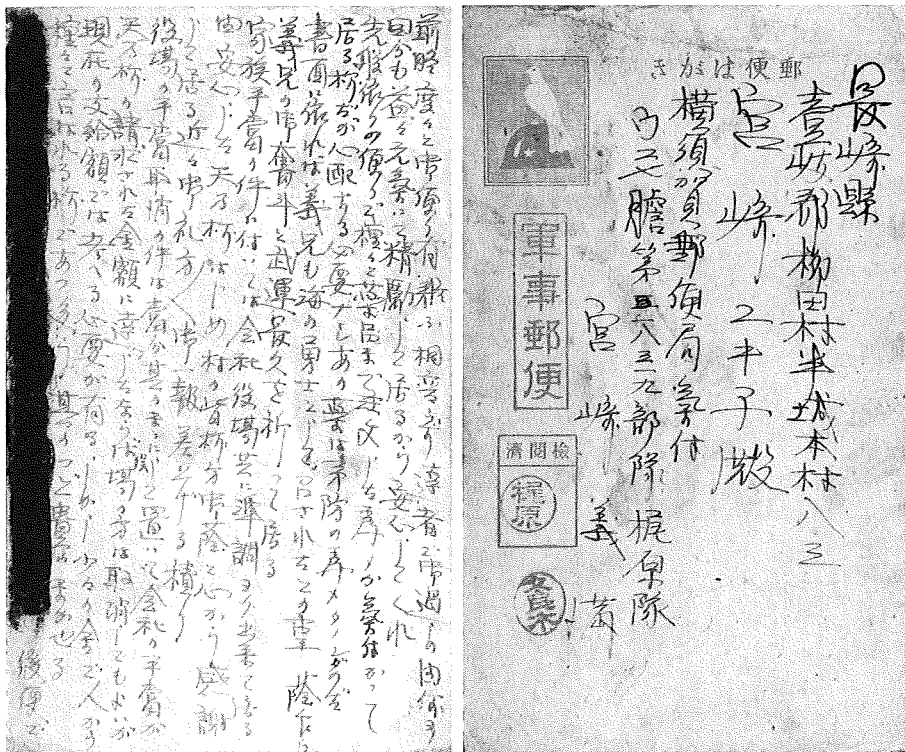 郵便はがき
長崎縣
壹岐郡柳田村半城本村八三
宮崎ユキ子殿
横須賀郵便局気付
ウ元膽第五八三九部隊 梶原隊
宮崎義満
軍事郵便
檢閲濟
梶原
前略度々御便り有難ふ相変らず達者で御過しの由何より
自分も益々元気に精勵して居るから安心してくれ
先般依りの便りで種々
居る称だが心配する必要なし
書面に依れば義兄も海の勇士として召されたとの事 蔭から
義兄の御奮斗と武運長久を祈って居る
家族手當の件に付いては会社役場共に準調に
由安心した 天乃称はじめ村の皆称方御蔭と心から感謝
して居る近々御礼方々御一報差上げる積り
役場の手當取消の件は 其のままに 置いて会社の手當が
天乃称の請求された金額に達したならば役場の方は取消してもよいが
現在の支給額では考へる必要が有る しかし少々の金で人から
種々言はれる称であったら
後便で